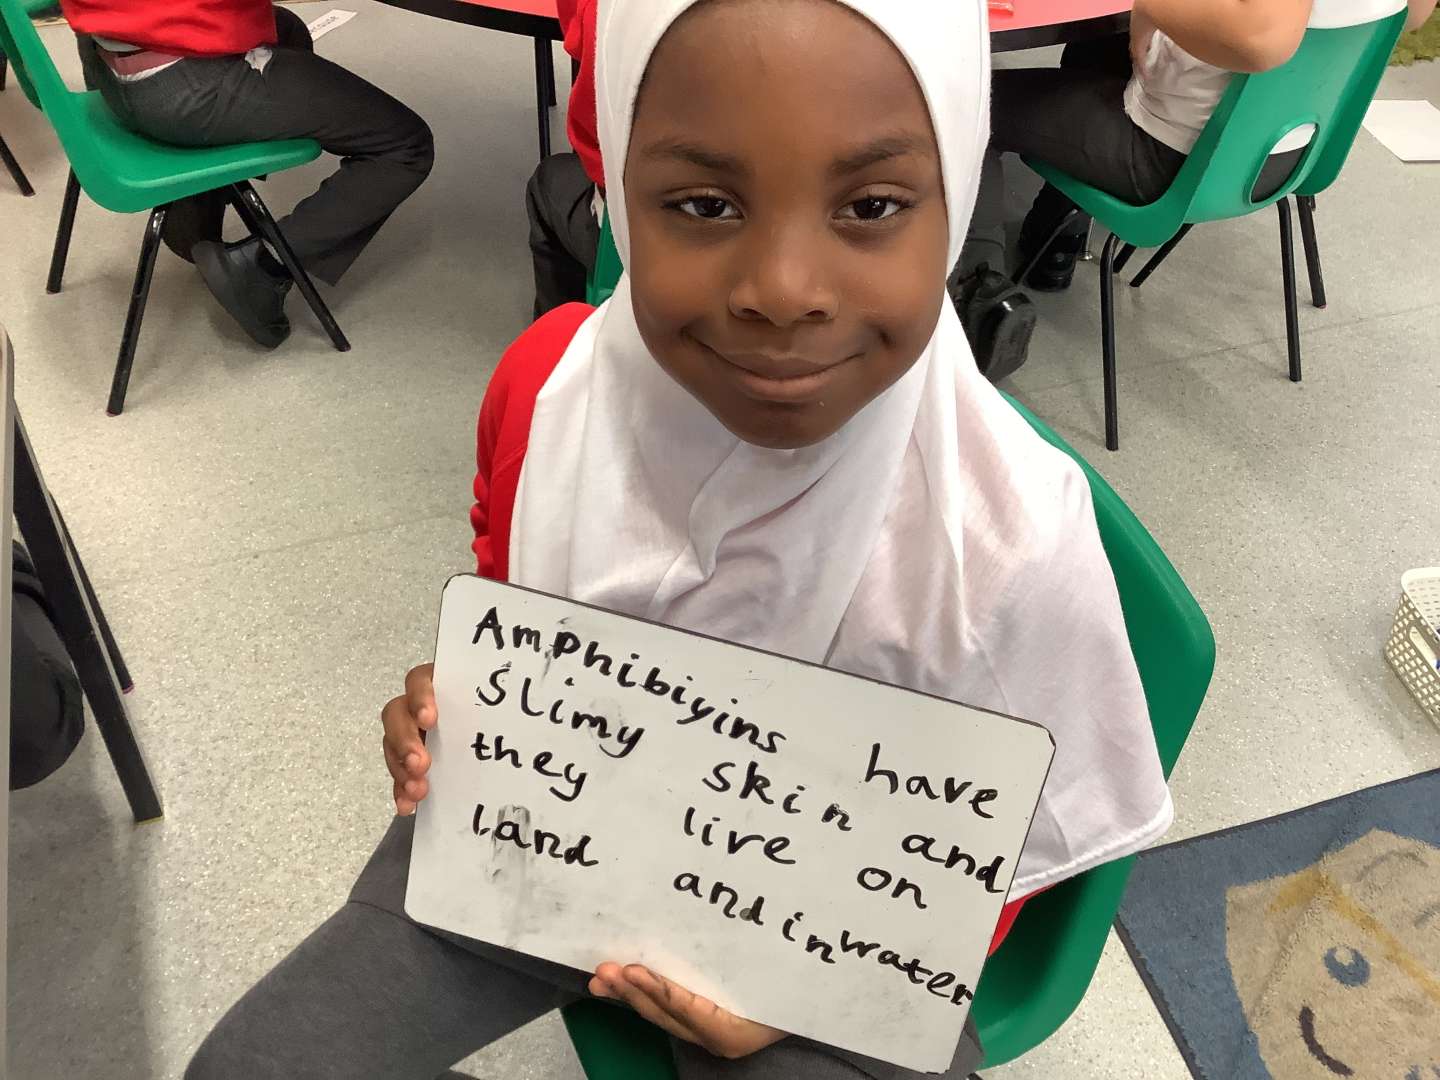 Amphibiyins have
slimy skin and
they live on
land and in water